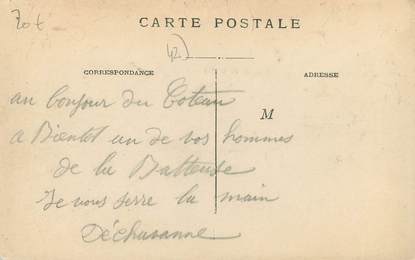 20€
CARTE POSTALE
42)
CORRESPONDANCE
ADRESSE
un bonjour du Coteau
M
a Bientot un de vos hommes
de la Batteuse
Je vous serre la main
Déchavanne